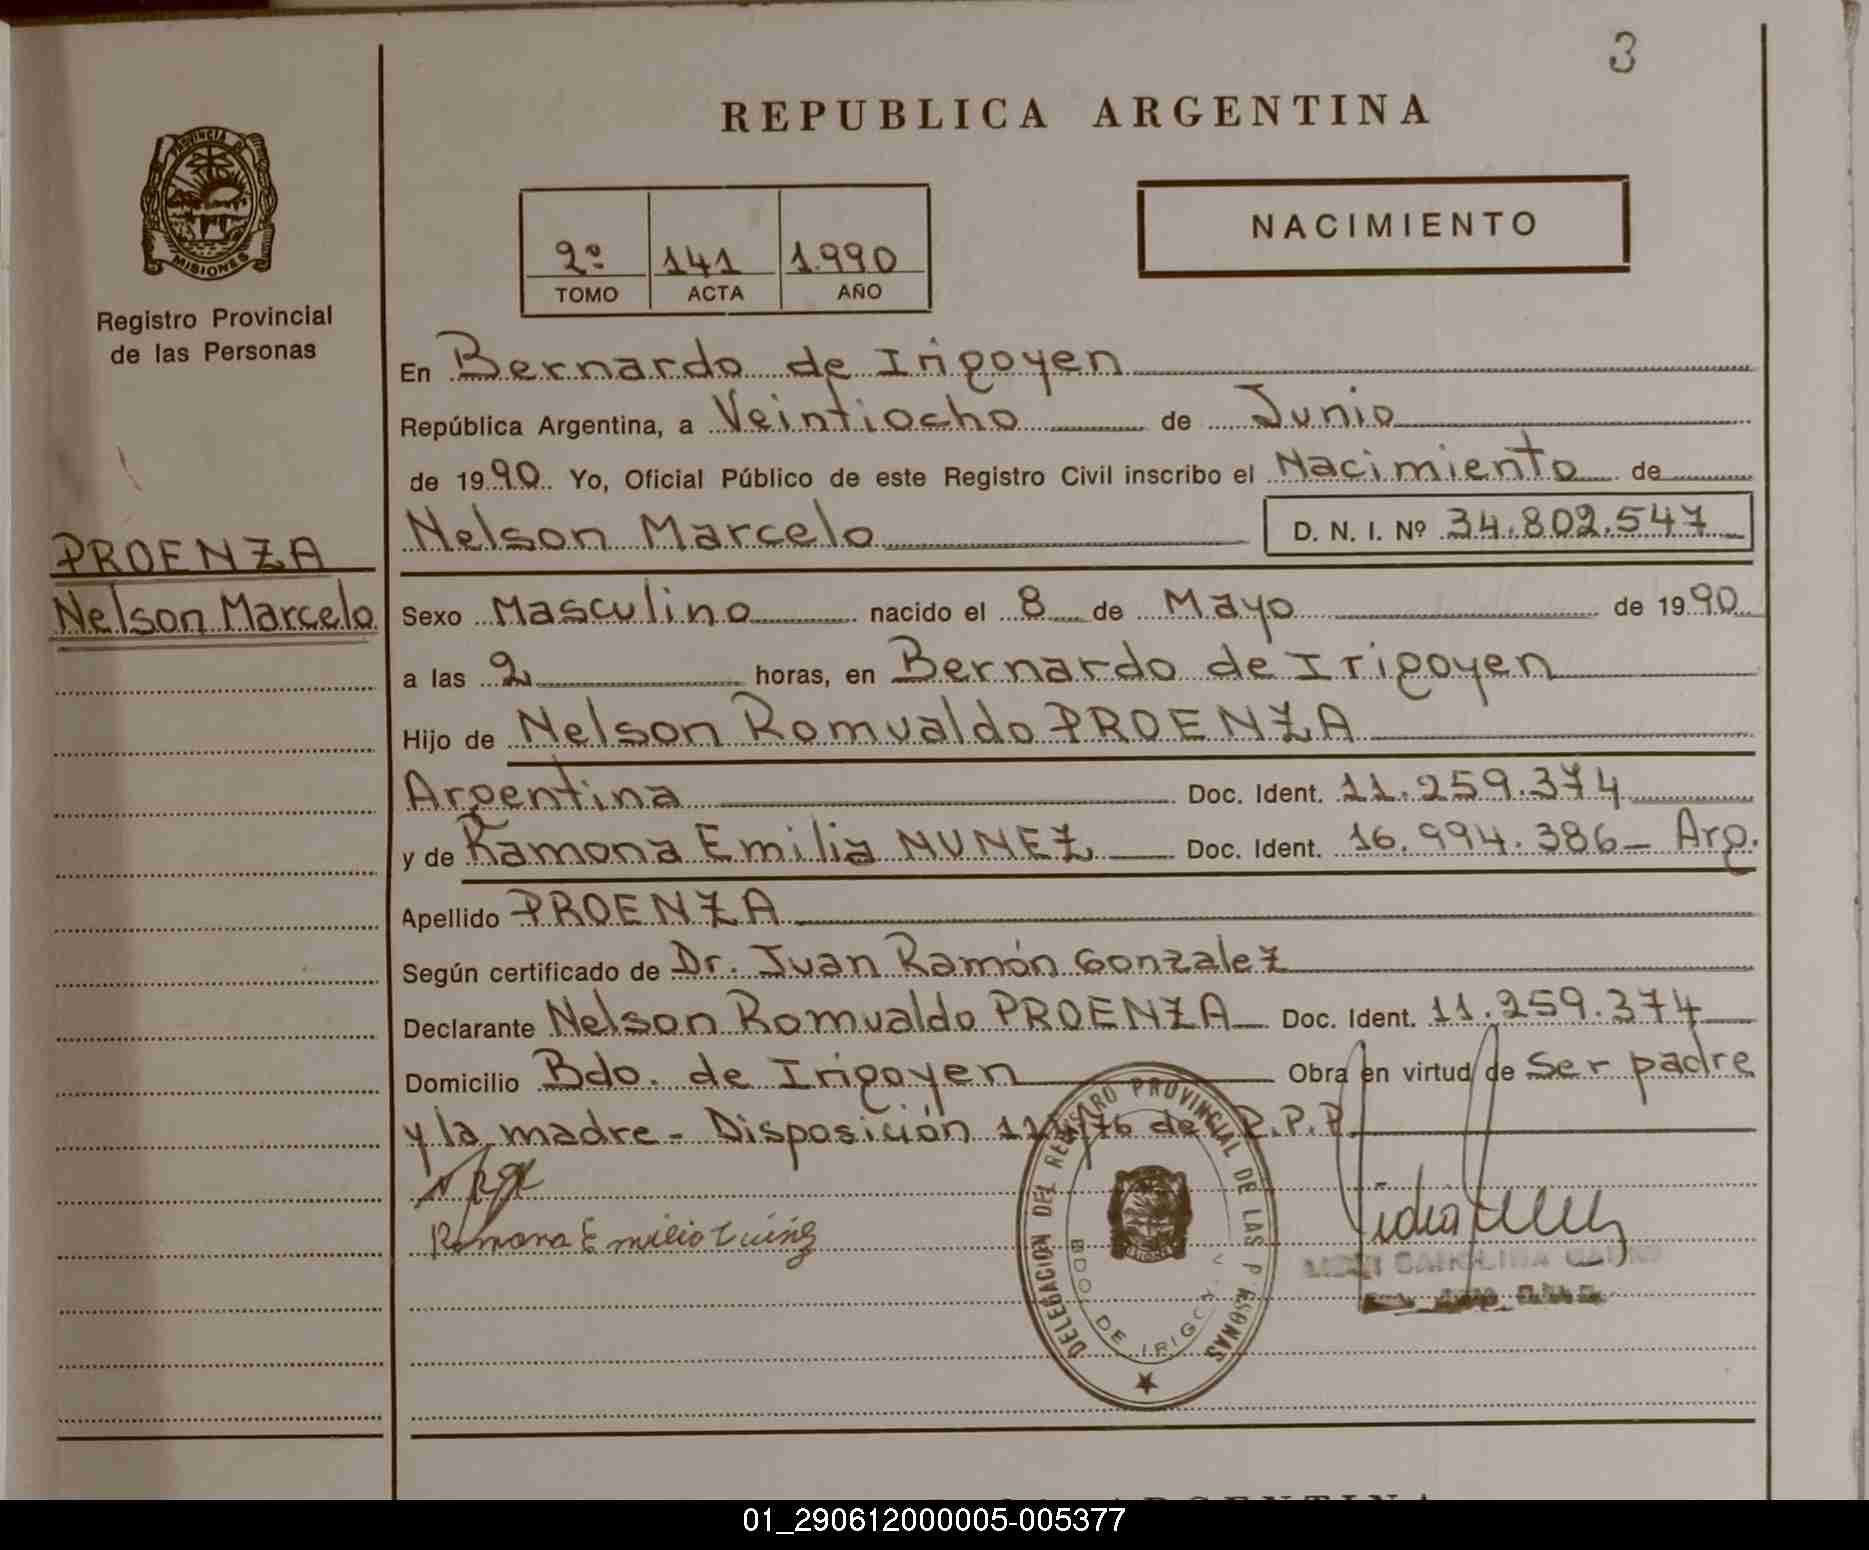 3
REPUBLICA ARGENTINA
PROVINCIA DE
MISIONES
Registro Provincial
de las Personas
2º 141 1.990
TOMO ACTA AÑO
NACIMIENTO
En Bernardo de Irigoyen
República Argentina, a Veintiocho de Junio
de 1990 Yo, Oficial Público de este Registro Civil inscribo el Nacimiento de
Nelson Marcelo D. N. I. Nº 34.802.547
PROENZA
Nelson Marcelo
Sexo Masculino nacido el 8 de Mayo de 1990
a las 2 horas, en Bernardo de Irigoyen
Hijo de Nelson Romualdo PROENZA
Argentina Doc. Ident. 11.259.374
y de Ramona Emilia NUNEZ Doc. Ident. 16.994.386- Arg.
Apellido PROENZA
Según certificado de Dr. Juan Ramón Gonzalez
Declarante Nelson Romualdo PROENZA Doc. Ident. 11.259.374
Domicilio Bdo. de Irigoyen Obra en virtud de Ser padre
y la madre - Disposición de R.P.P.
Ramona Emilia
DELEGACION DEL REGISTRO PROVINCIAL DE LAS P RSONAS
BDO DE IRIGOY
CAROLINA
ARGENTINA
01_290612000005-005377